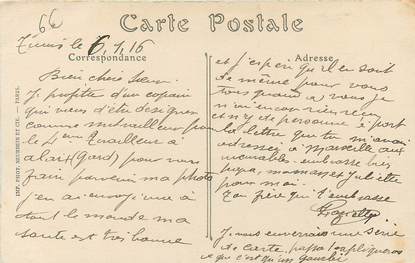 66
Carte Postale
Tunis le 6.1.16
Correspondance
Adresse
IMP. PHOT. NEURDEIN ET CIE. — PARIS.
Bien chère Sœur
Je profite d'un copain
qui viens d'été désigner
comme mitrailleur pour
le 2em Tirailleur à
alais (Gard) pour vous
faire parvenir ma photo
j'en ai envoyé une à
tout le monde ma
santé est très bonne
et j'espère qu'il en soit
de même pour vous
tous quand à vous je
n'ai encore rien reçu
et ny de personne à part
la lettre que tu m'avais
adressé à Marseille aux
embrasse bien
papa, maman et Juliette
pour moi.
Ton frère qui t'embrasse
Je vous enverrais une série
de carte, papa
ce que c'est qu'un gourbi